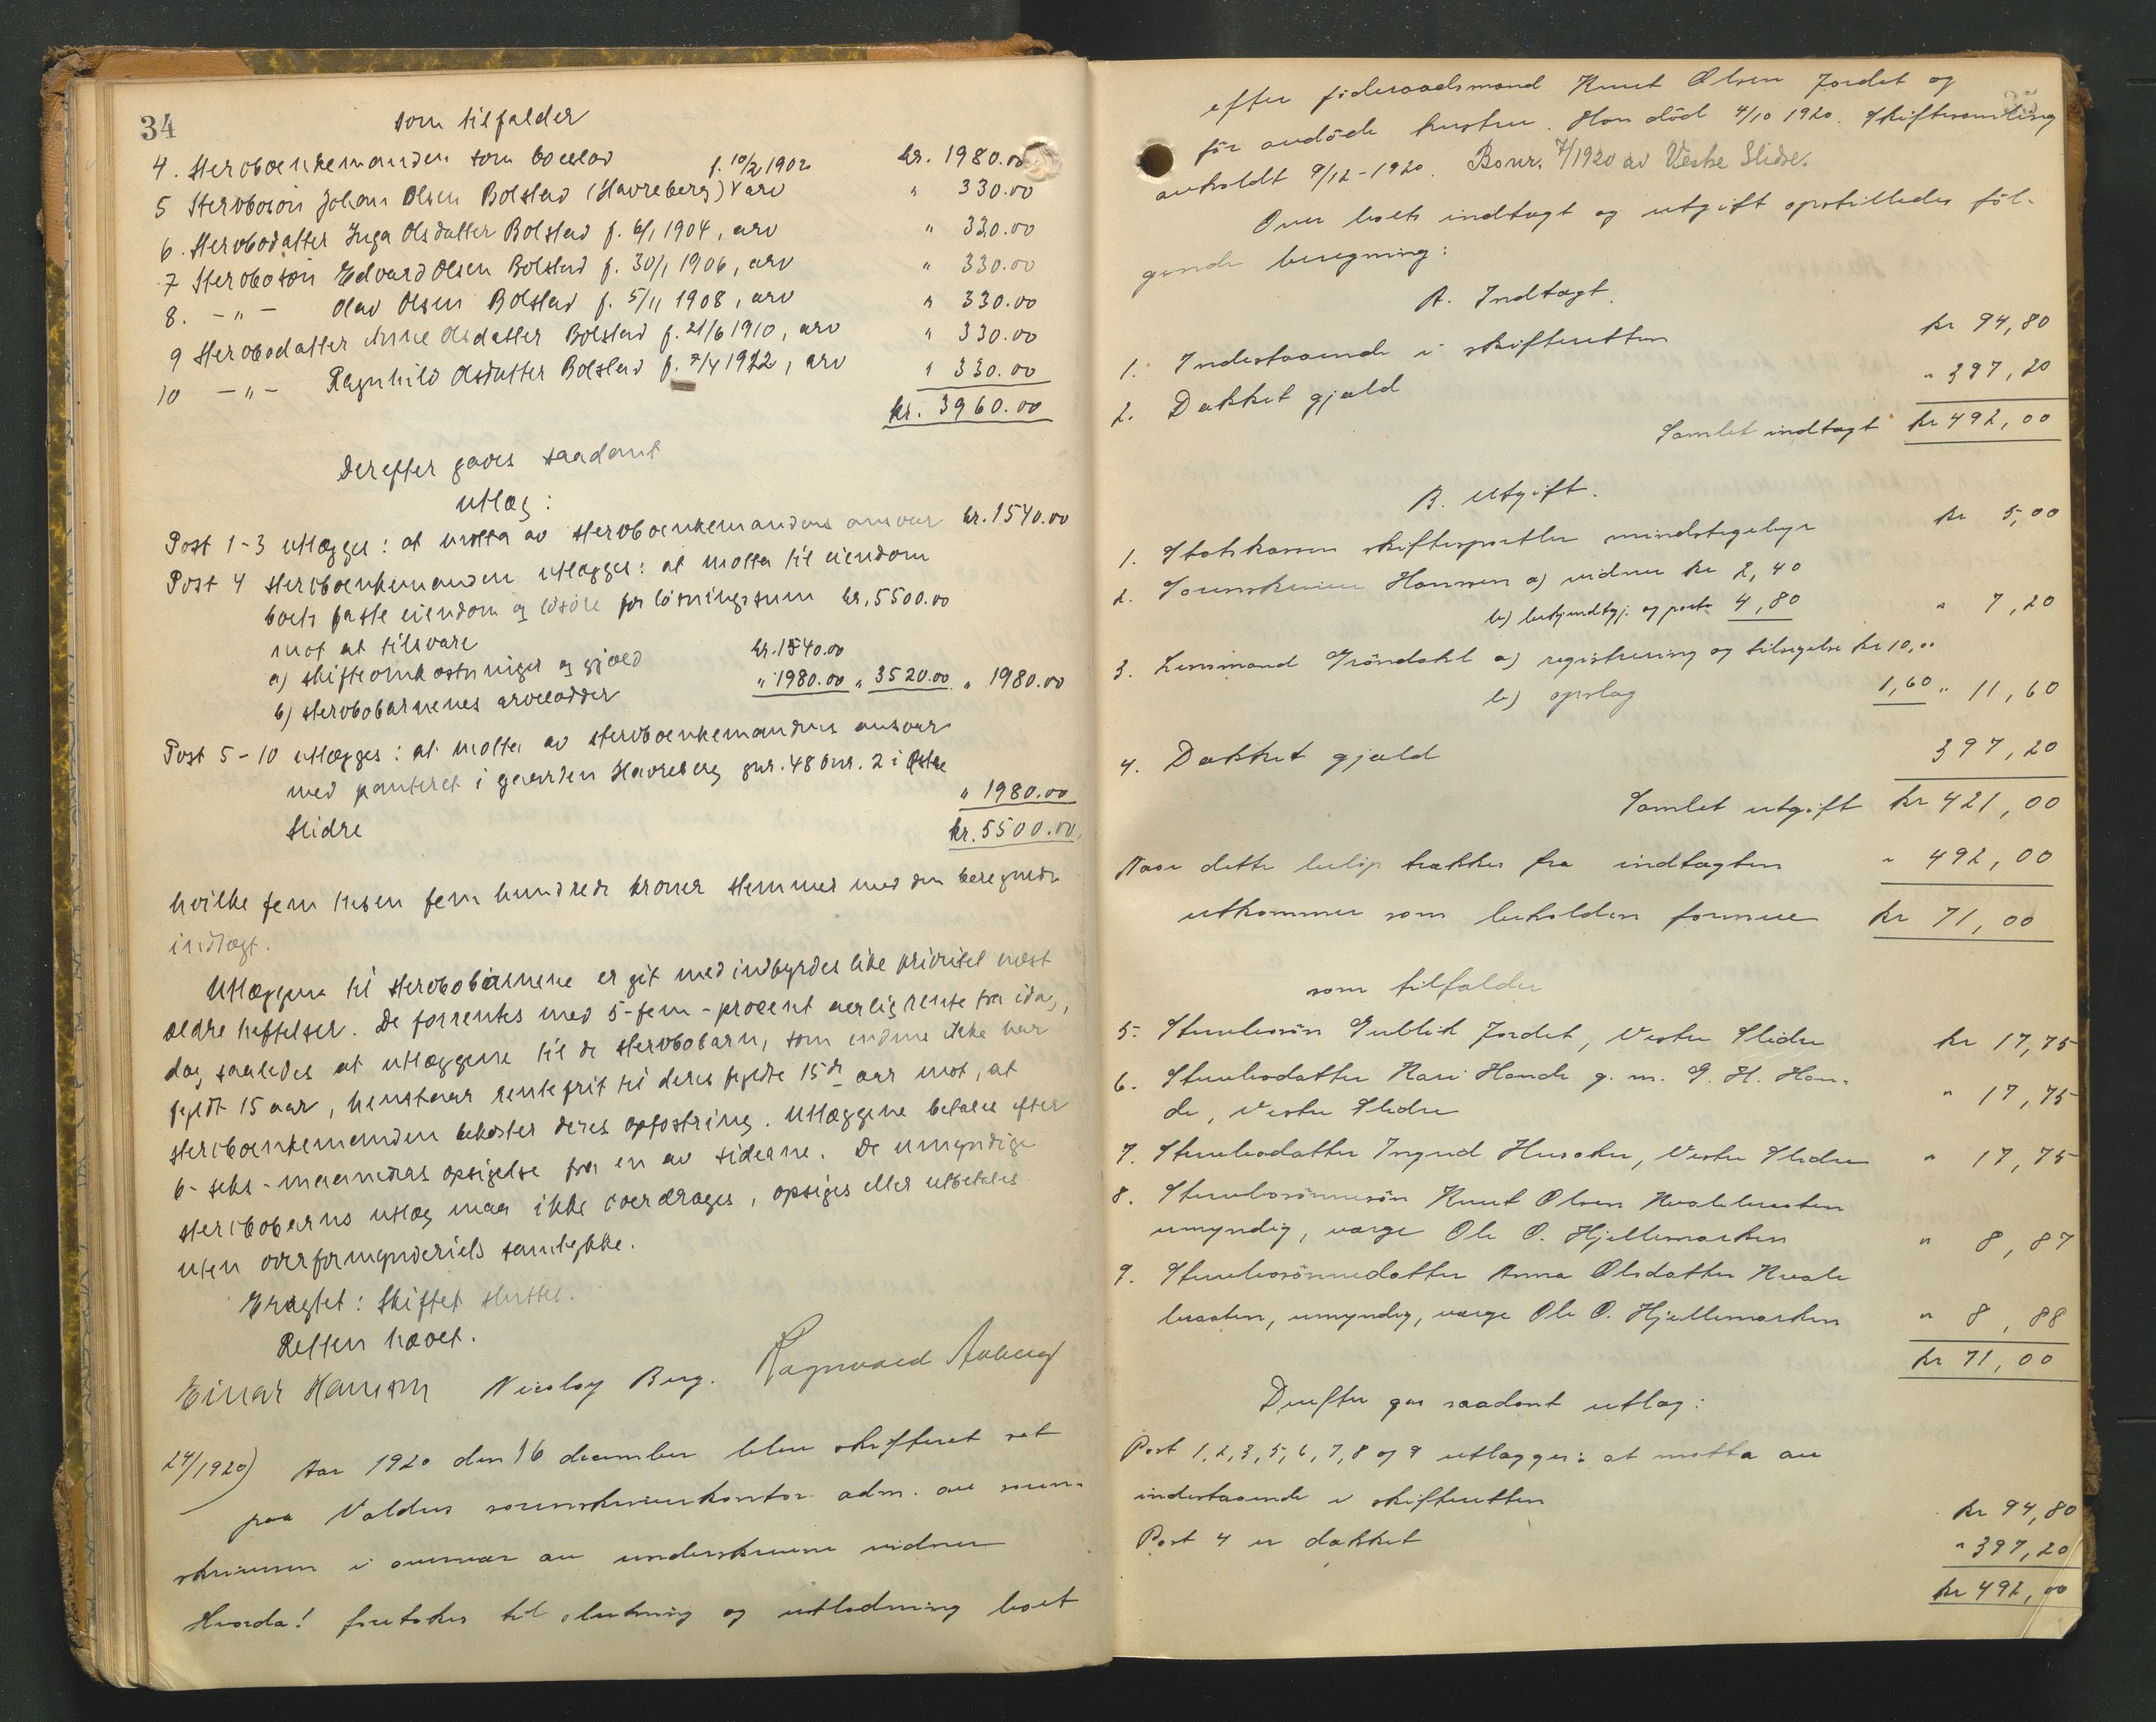 34
som tilfalder
4. Stervboenkemanden som boslod kr. 1980.00
5 Stervbosön Johan Olsen Bolstad (Havreberg) f. 10/2 1902 arv " 330.00
6. Stervbodatter Inga Olsdatter Bolstad f. 6/1 1904, arv " 330.00
7 Stervbosön Edvard Olsen Bolstad f. 30/1 1906, arv " 330.00
8. - " - Olav Olsen Bolstad f. 5/11 1908, arv " 330.00
9 Stervbodatter Anne Olsdatter Bolstad f. 21/6 1910, arv " 330.00
10 - " - Ragnhild Olsdatter Bolstad f. 7/4 1922, arv " 330.00
kr. 3960.00
Derefter gaves saadant
utlæg:
Post 1-3 utlægges: at motta av stervboenkemandens ansvar kr. 1540.00
Post 4 stervboenkemanden utlægges: at motta til eiendom
boets faste eiendom og lösöre for lösningssum kr. 5500.00
mot at tilsvare
a) skifteomkostninger og gjæld kr. 1540.00
b) stervbobarnenes arvelodder " 1980.00 " 3520.00 " 1980.00
Post 5-10 utlægges: at motta av stervboenkemandens ansvar
med panteret i gaarden Havreberg gnr. 48 bnr. 2 i Østre
Slidre " 1980.00
kr. 5500.00
hvilke fem tusen fem hundrede kroner stemmer med den beregnede
indtægt.
Utlæggene til stervbobarnene er git med indbyrdes like prioritet næst
ældre heftelser. De forrentes med 5-fem-procent aarlig rente fra idag,
dog saaledes at utlæggene til de stervbobarn, som endnu ikke har
fyldt 15 aar, henstaar rentefrit til deres fyldte 15de aar mot, at
stervboenkemanden bekoster deres opfostring. Utlæggene betales efter
6-seks-maaneders opsigelse fra en av siderne. De umyndige
stervbobarns utlæg maa ikke overdrages, opsiges eller utbetales
uten overformynderiets samtykke.
Eragtet: Skiftet sluttet.
Retten hævet.
Einar Hanson Nicolay Berg. Ragnvald Aaberg
24/1920) Aar 1920 den 16 december blev skifteret sat
paa Valdres sorenskriverkontor adm. av soren-
skriveren i overvær av underskrevne vidner
Hvorda! foretokes til slutning og utlodning boet
35
efter föderaadsmand Knut Olsen Jordet og
för avdöde hustru. Han död 4/10 1920. Skiftesamling
avholdt 9/12-1920. Bonr. 7/1920 av Vestre Slidre.
Over boets indtægt og utgift opstilledes föl-
gende beregning:
A. Indtægt.
1. Indestaaende i skifteretten kr 94,80
2. Dækket gjæld " 397,20
Samlet indtægt kr 492,00
B. Utgift.
1. Statskassen skiftesportler mindstegebyr kr 5,00
2. Sorenskriver Hanson a) vidner kr 2,40
b) bekjendtgj. og porto 4,80 " 7,20
3. Lensmand Gröndahl a) registrering og tilsigelse kr 10,"
b) opslag 1,60 " 11,60
4. Dækket gjæld 397,20
Samlet utgift kr 421,00
Naar dette belöp trækkes fra indtægten " 492,00
utkommer som beholden formue kr 71,00
som tilfalder
5. Stervbosön Gudlik Jordet, Vestre Slidre kr 17,75
6. Stervbodatter Kari Hande g. m. G. H. Han-
de, Vestre Slidre " 17,75
7. Stervbodatter Ingrid Husaker, Vestre Slidre " 17,75
8. Stervbosönnesön Knut Olsen Kvalebraaten
umyndig, værge Ole O. Hjellemarken " 8,87
9. Stervbosönnedatter Anna Olsdatter Kvale
braaten, umyndig, værge Ole O. Hjellemarken " 8,88
kr 71,00
Derefter gav saadant utlæg:
Post 1, 2, 3, 5, 6, 7, 8 og 9 utlægges: at motta av
indestaaende i skifteretten kr 94,80
Post 4 er dækket " 397,20
kr 492,00